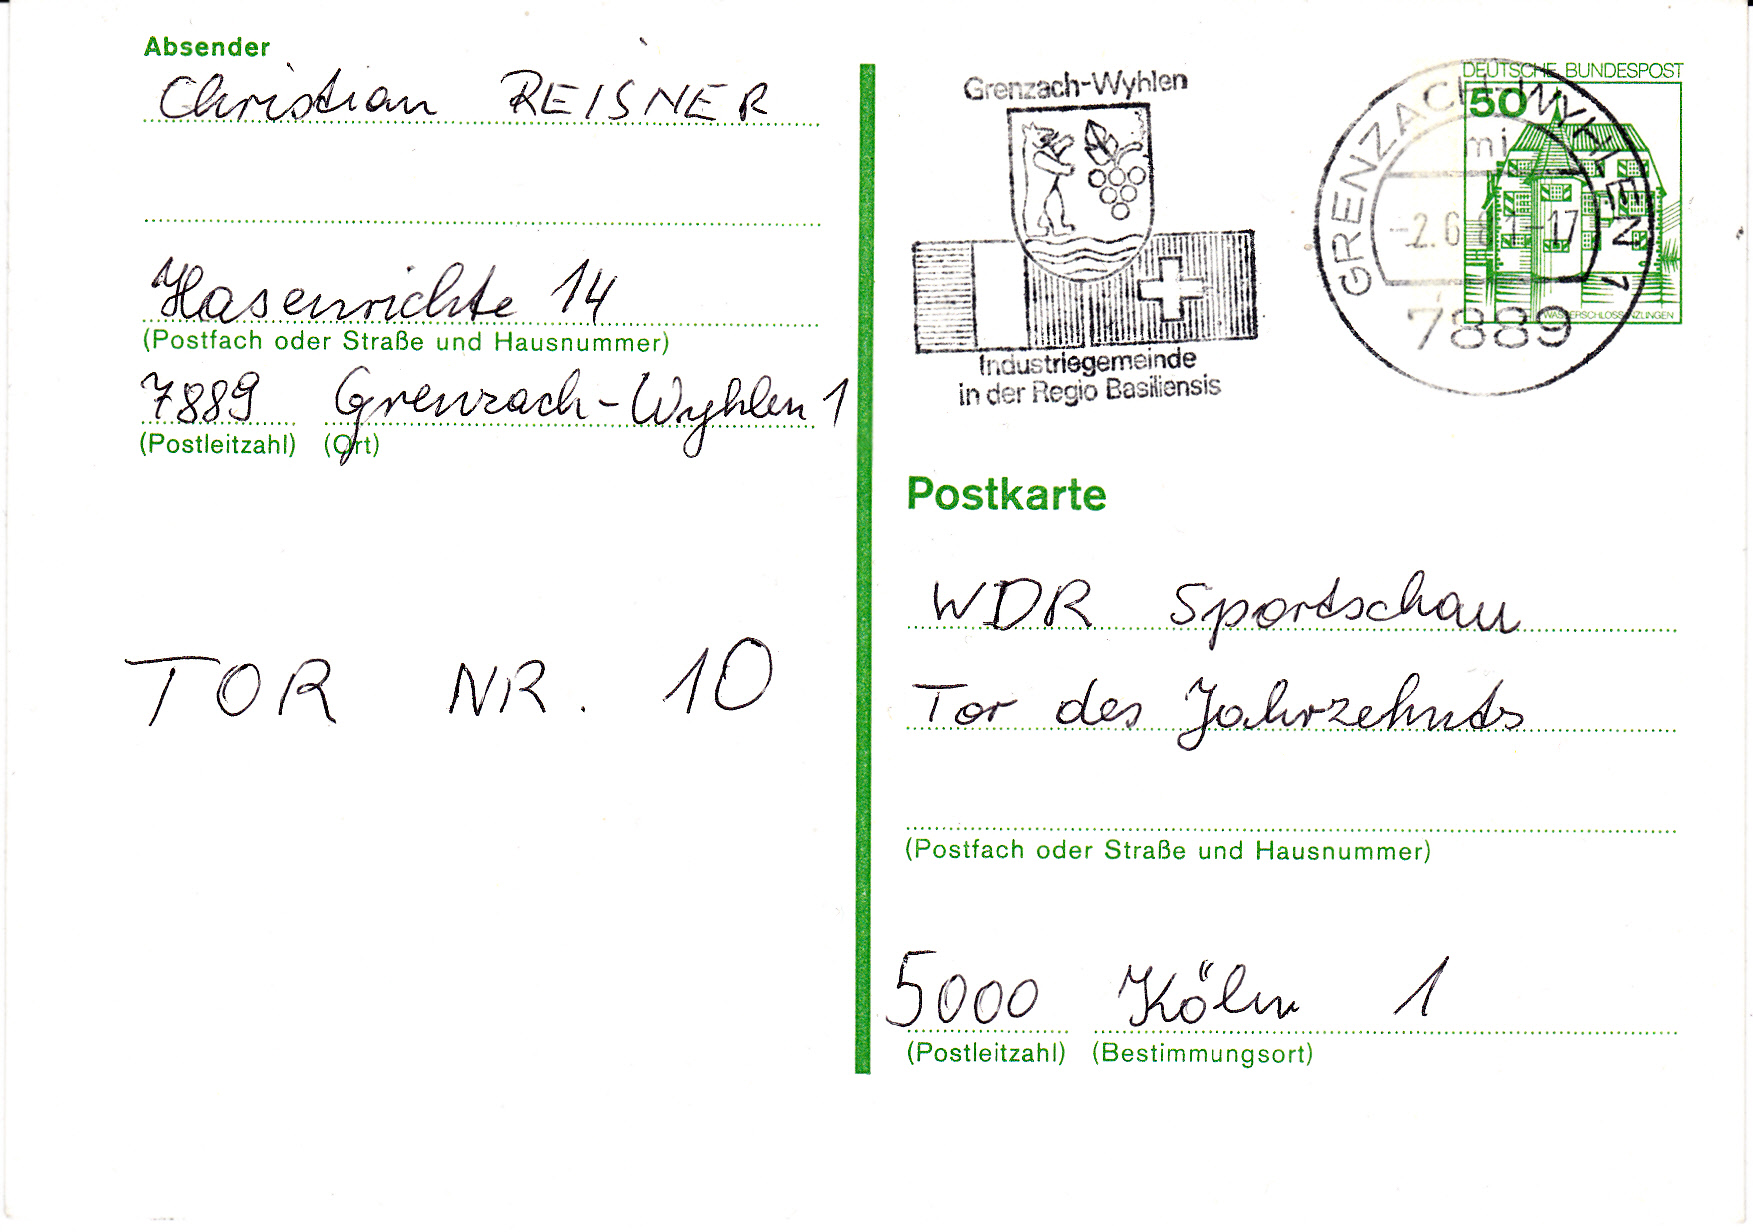 Absender
Christian REISNER
Hasenrichte 14
(Postfach oder Straße und Hausnummer)
7889 Grenzach-Wyhlen 1
(Postleitzahl) (Ort)
TOR NR. 10
Grenzach-Wyhlen
Industriegemeinde
in der Regio Basiliensis
GRENZACH-WYHLEN 1
mi
-2.6.81-17
7889
DEUTSCHE BUNDESPOST
50
WASSERSCHLOSS INZLINGEN
Postkarte
WDR Sportschau
Tor des Jahrzehnts
(Postfach oder Straße und Hausnummer)
5000 Köln 1
(Postleitzahl) (Bestimmungsort)